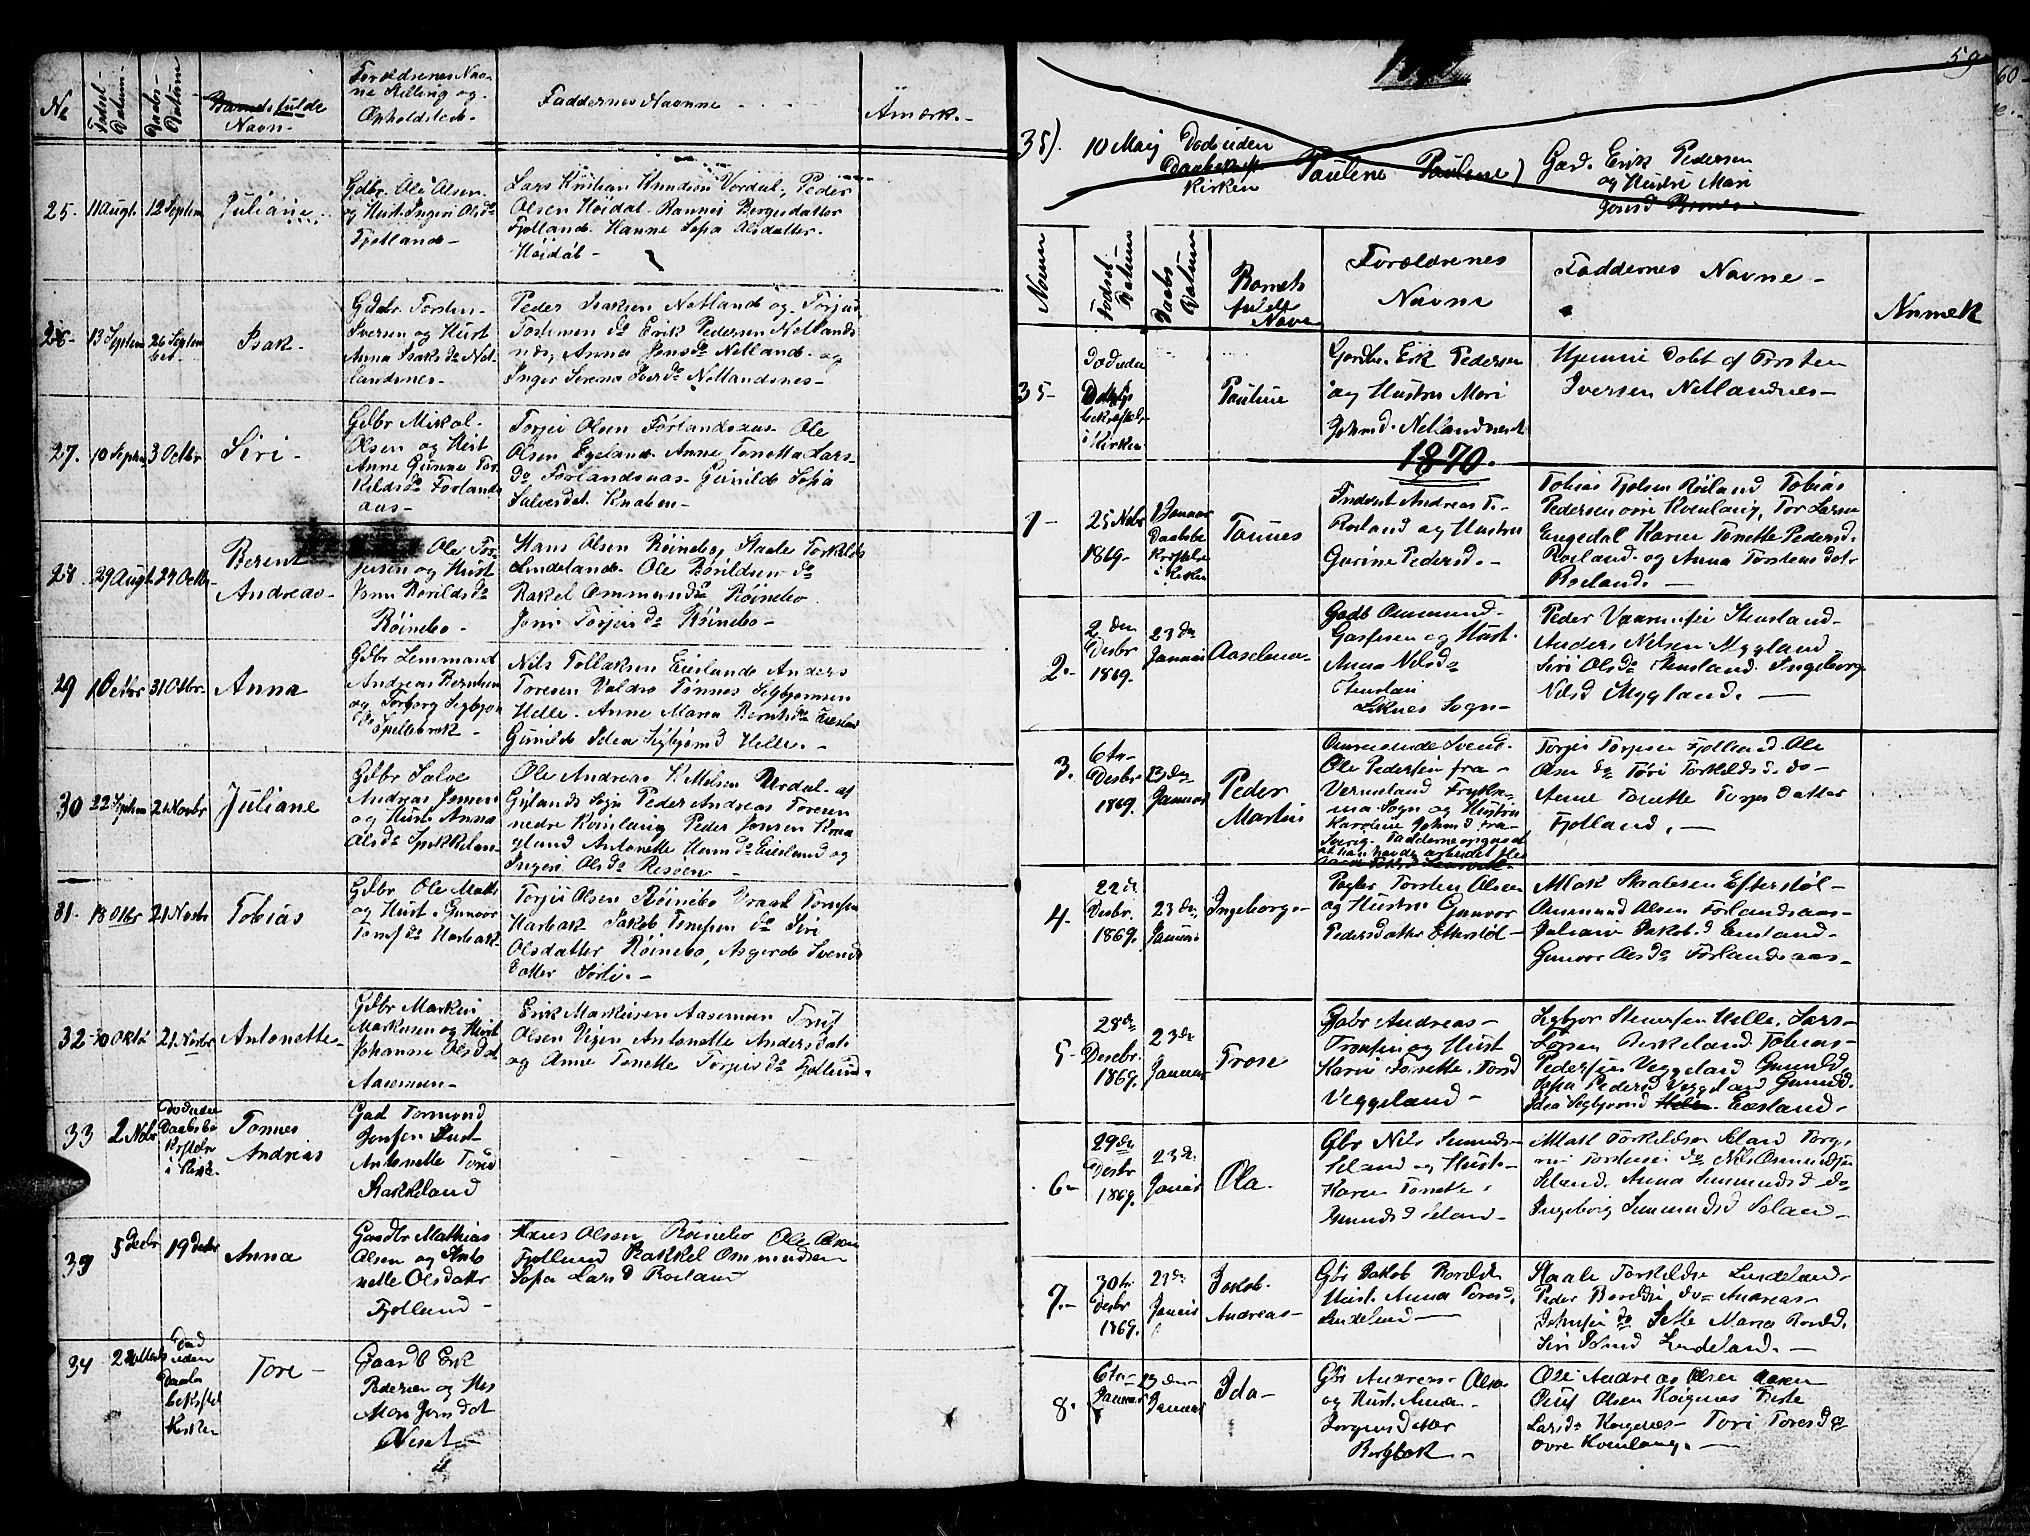 No
Fødsel-
Datum
Daabs-
Datum
Barnets fulde
Navn-
Forældrenes Nav-
ne Stilling og
Opholdsted-
Faddernes Navne-
Anmærk.-
25.
11 Augt.
12 Septem
Juliane
Gdbr. Ole Olsen
og Hust. Ingeri Olsd
Fjotland-
Lars Kristian Knudsen Vordal, Peder
Olsen Høidal. Rannei Bergesdatter
Fjotland. Hanne Sofa Olsdatter.
Høidal-
26-
13 Septem
26 Septem
ber.
Isak-
Gdbr. Torsten
Iversen og Hust
Anna Isaksda Net-
landsnes-
Peder Isaksen Netland og Torjus
Torstensen do Erik Pedersen Netlands
nes, Anna Jonsda Netland- og
Inger Serena Iversda Netlandsnes-
27.
10 Septem
3 Octbr
Siri-
Gdbr Mikal-
Olsen og Hust
Anne Gunne Tor-
kildsda Forlands
aas-
Torjei Olsen Førlandsaas- Ole
Olsen Egeland- Anne Tonetta Lars-
da Forlandsaas- Gunild Sofa
Salvesdat. Knaben-
28.
29 Augt.
24 Octbr-
Berent
Andreas-
Ole Tor-
jesen og Hust
Jonn Borildsda
Røinebo-
Hans Olsen Røinebo, Staale Torkilds
Lindeland- Ole Borildsen do
Rakel Ommundsda Røinebo
Jonn Torjeisda Røinebo-
29
1 Octbr
31 Octbr-
Anna
Gdbr Lemmand
Andreas Berntsen
og Torborg Segbjon
da Spellebrok-
Nils Tollaksen Eieland Anders
Toresen Valdro Tønnes Segbjornsen
Helle- Anne Maria Berntsda Eiesland
Gunild Idea Segbjornsd Helle.-
30
22 Septem
21 Novbr
Juliane
Gdbr Salve
Andreas Jonsen
og Hust. Anna
Olsda
Ole Andreas K. Nelsen Urdal- af
Gylands Sogn Peder Andreas Toresen
nedre Kvinlaug Peder Jonsen Kraa
glund Antonette Hansda Eiesland og
Ingeri Olsda Risøen-
31.
18 Otbr
21 Novbr
Tobias
Gdbr Ole Math
og Hust. Gunvor
Tonesda Harbak-
Torjei Olsen Røinebo Vraal Tonesen
Harbak Jakob Tonesen do Siri
Olsdatter Røinebo, Asgerd Svends
datter Sørli.-
32
30 Oktb
21 Novbr
Antonette-
Gdbr Markus
Markusen og Hust
Johanne Olsdat
Aasemun-
Erik Markusen Aasemun Tonis
Olsen Vigen Antonette Andersdat
og Anne Tonette Torjeisda Fjotland.
33
2 Nobr
Død uden
Daabsbe
kræftelse
i Kirke-
Tønnes
Andreas
Gad Tormond
Jonsen Hust
Antonette Torsd
Stakkeland
39
5 Decbr
19 Decbr
Anna
Gaardbr Mathias
Olsen og Anto
nette Olsdattr
Fjotland-
Hans Olsen Røinebo Ole Olsen
Fjotland Rakkel Ommundsen
Sofa Larsd Roiland
34
2
Død
uden
Daabs
bekræftel
Kirken
Tore-
Gaardb Erik
Pedersen og Hus
Mari Jonsdat
Neset-
59
35).
10 Maij
Død uden
Daabsbekræft
Kirken
Paulene
Paulene)
Gad. Erik Pedersen
og Hustru Mari
Jonsd
Fødsel
Datum
Daabs
Datum
Barnets
fulde
Navn
Forældrenes
Navne
Faddernes Navne-
Anmek
35-
Død uden
Daabs
bekræftels
i Kirken
Pauline
Gardbr. Erik Pedersen
og Hustru Mari
Johnsd. Netlandsnes
Hjemme døbt af Torsten
Iversen Netlandnes-
1870.
1-
25 Nobr
1869-
1 Januar
Daabsbe
kræftelse
i Kirken
Tønnes
Inderst Andreas T.
Roiland og Hustru
Gurine Pedersd.-
Tobias Tjølsen Røiland Tobias
Pedersen ovre Kvenlaug, Tor Larsen
Engedal Karen Tonette Pedersd.
Roiland. og Anna Torstensdatr
Roiland.-
2.-
2den
Desbr
1869.
23de
Januar
Aaselena-
Gadb Ommund-
Gaspesen og Hust.
Anna Nelsda
Stensland
Liknes Sogn-
Peder Vaarensen Stensland-
Anders Nelsen Mygland
Siri Olsda Stensland. Ingeborg
Nelsd Mygland.-
3.
6te
Desbr
1869.
23de
Januar
Peder
Martin
Omreisende Svend-
Ole Pedersen fra-
Vermeland
Sogn og Hustru
Karoline Johnsd fra-
Sverig.
Torjei Torjesen Fjotland Ole
Olsen do Tori Torkildsd. do-
Anne Tonette Torjesdatter
Fjotland.-
4.
22de
Desbr.
1869.
23de
Januar
Ingeborg-
Pagter Torsten Olsen
og Hustru Gunvor
Pedersdatter Efterstøl-
Mak Staalesen Efterstøl-
Ommund Olsen Forlandsaas-
Juliani Jakobsd Eiesland-
Gunvor Olsda Forlandsaas-
5-
28de
Desebr.
1869.
23de
Januar
Trone
Gabr Andreas-
Tronsen og Hust
Karen Tonette. Torsd
Veggeland-
Segbjor Stenersen Helle. Lars-
Larsen Birkeland. Tobias-
Pedersen Veggeland Gunild.
Sofa Pedersd Veggeland Gunild.
Idea Segbjornsd Helle. Eiesland-
6-
29de
Desbr
1869.
23de
Januar
Ola.
Gbr Nils Semunds-
Seland og Hust-
Karen Tonette-
Asmundsd Seland-
Matt Torkildsen Seland Torg-
Torstensen do Nils Osmundsen
Seland. Anna Semundsd do
Ingeborg Semmundsd Seland-
7.-
30te
Desbr
1869.
23de
Januar
Jakob-
Andreas-
Gbr Jakob Borelds
Hust. Anna Toresd.
Lindeland-
Staale Torkildsen Lindeland-
Peder Boreldsen do- Andreas-
Johnsen do Sette Maria Boreld.
Siri Lindeland.-
8.
6te-
Januar
23de-
Januar
Ida-
Gbr Andreas- Olsen
og Hust. Anna-
Jorgensdatter
Bergbek-
Ole Andreas Olsen Aasen
Omt Olsen Knignes
Larsda Tori Toresda
ovre Kvenlaug.-
60-